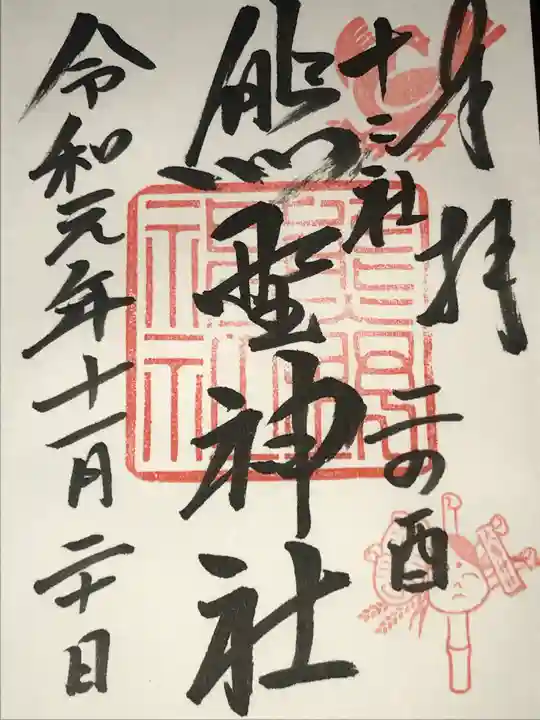 奉拝
十二社
二の酉
熊野神社
令和元年十一月二十日
熊野神社